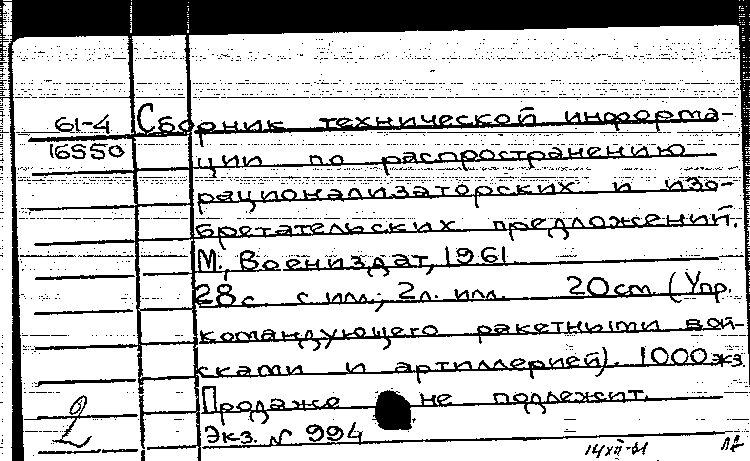 61-4 Сборник технической информа-
16550 ции по распространению
рационализаторских и изо-
бретательских предложений.
М., Воениздат, 1961
28с. с илл.; 2л. илл. 20см. (Упр.
командующего ракетными вой-
сками и артиллерией). 1000экз
Продаже не подлежит.
2 Экз. № 994
14XII-61 ЛД